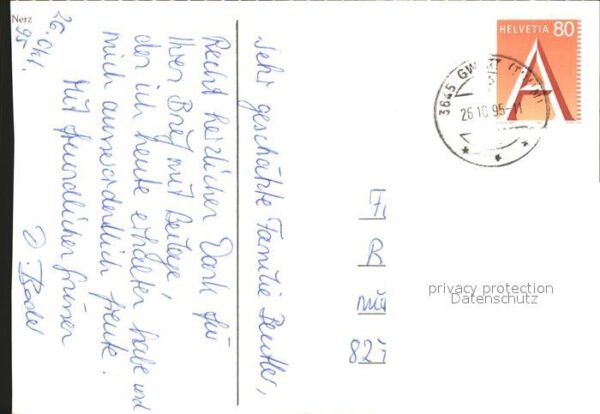 Nerz
26. Okt.
95
Sehr geschätzte Familie Beutler,
Recht herzlichen Dank für
Ihren Brief mit Beilage,
den ich heute erhalten habe und
mich ausserordentlich freute.
Mit freundlichen Grüssen
HELVETIA 80
A
3645 GWATT (THUN)
26.10.95-11
F
R
82
privacy protection
Datenschutz